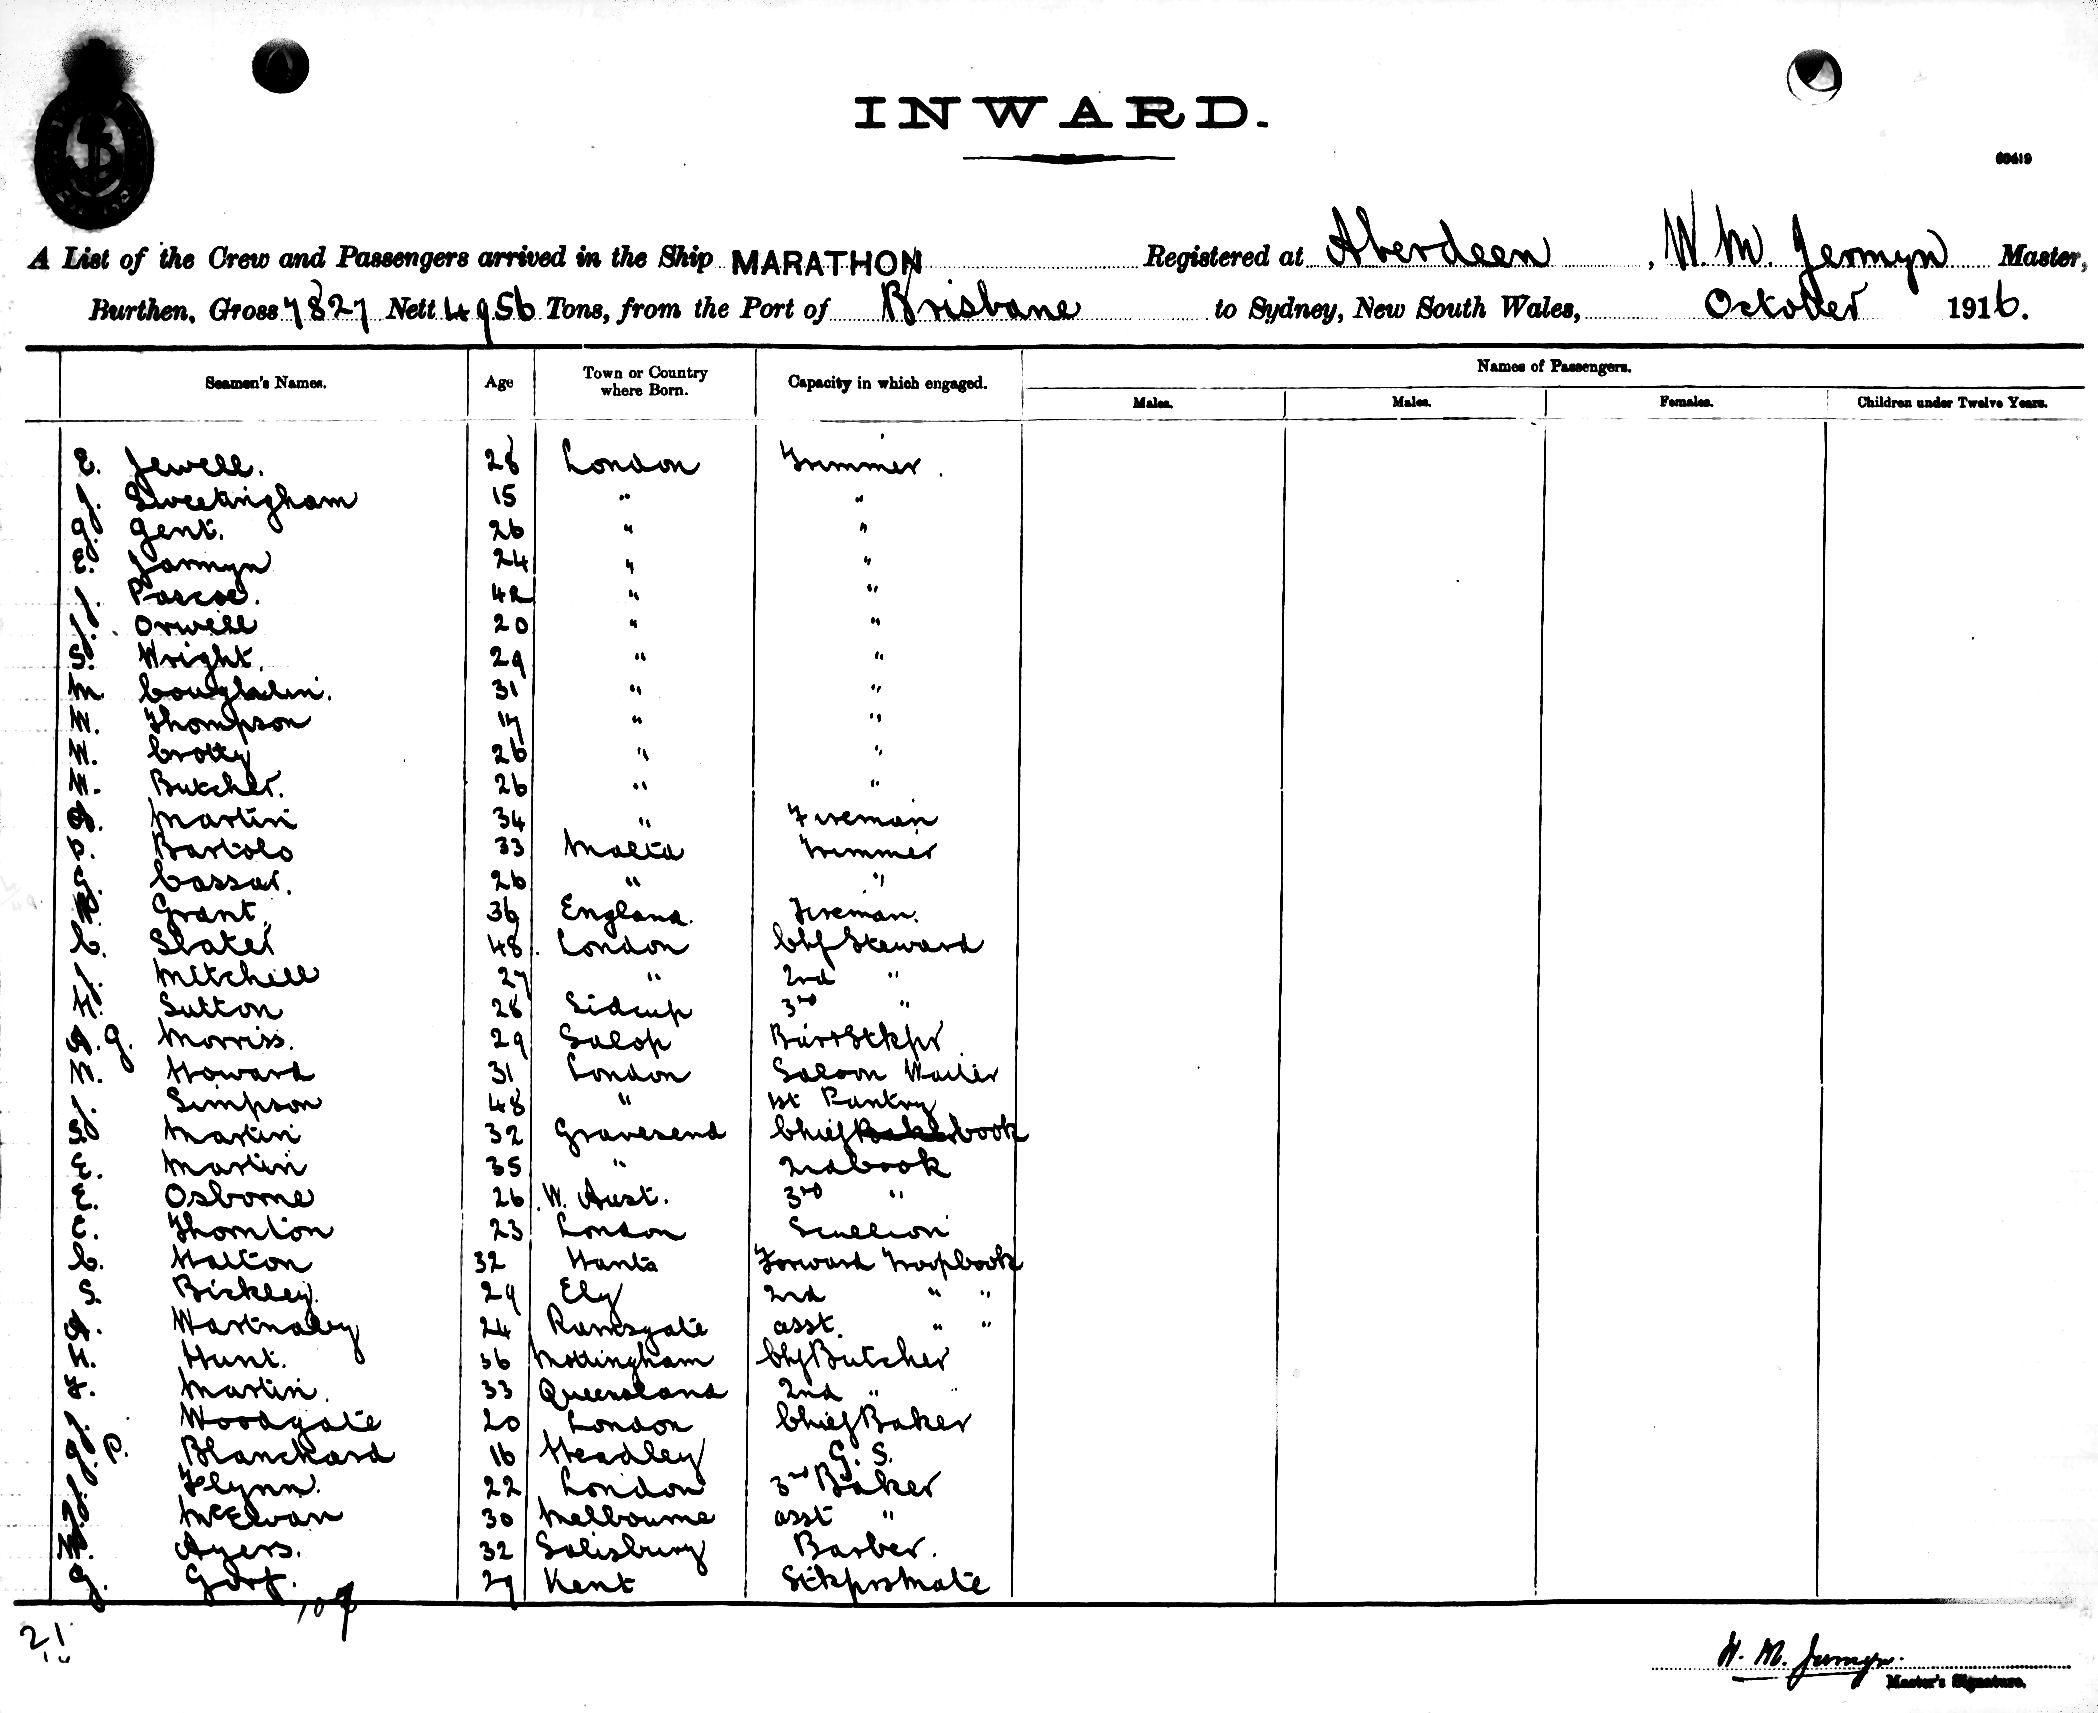 INWARD.
60419
A List of the Crew and Passengers arrived in the Ship MARATHON Registered at Aberdeen, W. M. Jermyn Master,
Burthen, Gross 7827 Nett 4956 Tons, from the Port of Brisbane to Sydney, New South Wales, October 1916.
Seamen's Names. Age Town or Country where Born. Capacity in which engaged. Names of Passengers.
Males. Males. Females. Children under Twelve Years.
E. Jewell. 28 London Trimmer.
J. Sweetingham 15 " "
G. Gent. 26 " "
E. Jarmyn 24 " "
J. Pascoe. 42 " "
J. Orwell 20 " "
S. Wright. 29 " "
M Coughlin. 31 " "
W. Thompson 17 " "
W. Crotty 26 " "
W. Butcher. 26 " "
A. Martin 34 " Fireman
P. Bartolo 33 Malta Trimmer
G. Cassar. 26 " "
Grant. 36 England. Fireman.
C. Slater 48 London Chf Steward
J. Mitchell 27 " 2nd "
H. Sutton 28 Sidcup 3rd "
A. G. Morriss. 29 Salop Bar&Stkpr
W. Howard 31 London Saloon Waiter
J. Simpson 48 " 1st Pantry
S. Martin 32 Gravesend Chief Baker Cook
E. Martin 35 " 2nd Cook
E. Osborne 26 W. Aust. 3rd "
E. Thornton 23 London Scullion
C. Hatton 32 Hants Forward Troop Cook
S. Bickley. 29 Ely 2nd " "
A. Wartnaby 24 Ramsgate asst. " "
H. Hunt. 36 Nottingham Chf Butcher
F. Martin. 33 Queensland 2nd "
J. Woodgate 20 London Chief Baker
G. P. Blanchard 16 Headley G. S.
J. Flynn. 22 London 3rd Baker
J. McEwan 30 Melbourne asst "
W. Ayers. 32 Salisbury Barber.
G. Gorf. 27 Kent Stkprs Mate
107
21
W. M. Jermyn.
Master's Signature.